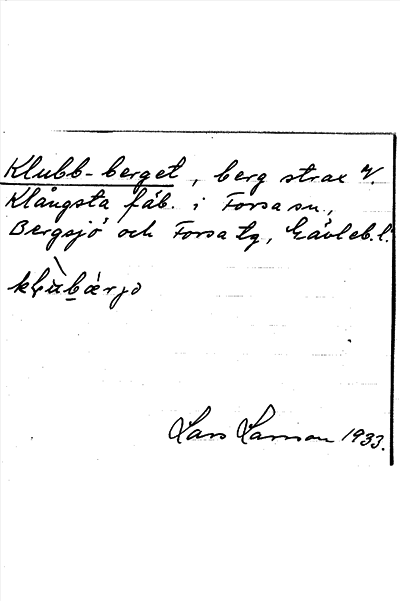 Klubb-berget, berg strax v.
Klångsta fäb. i Forsa sn.,
Bergsjö och Forsa tg, Gävleb.l.
Lars Larsson 1933.